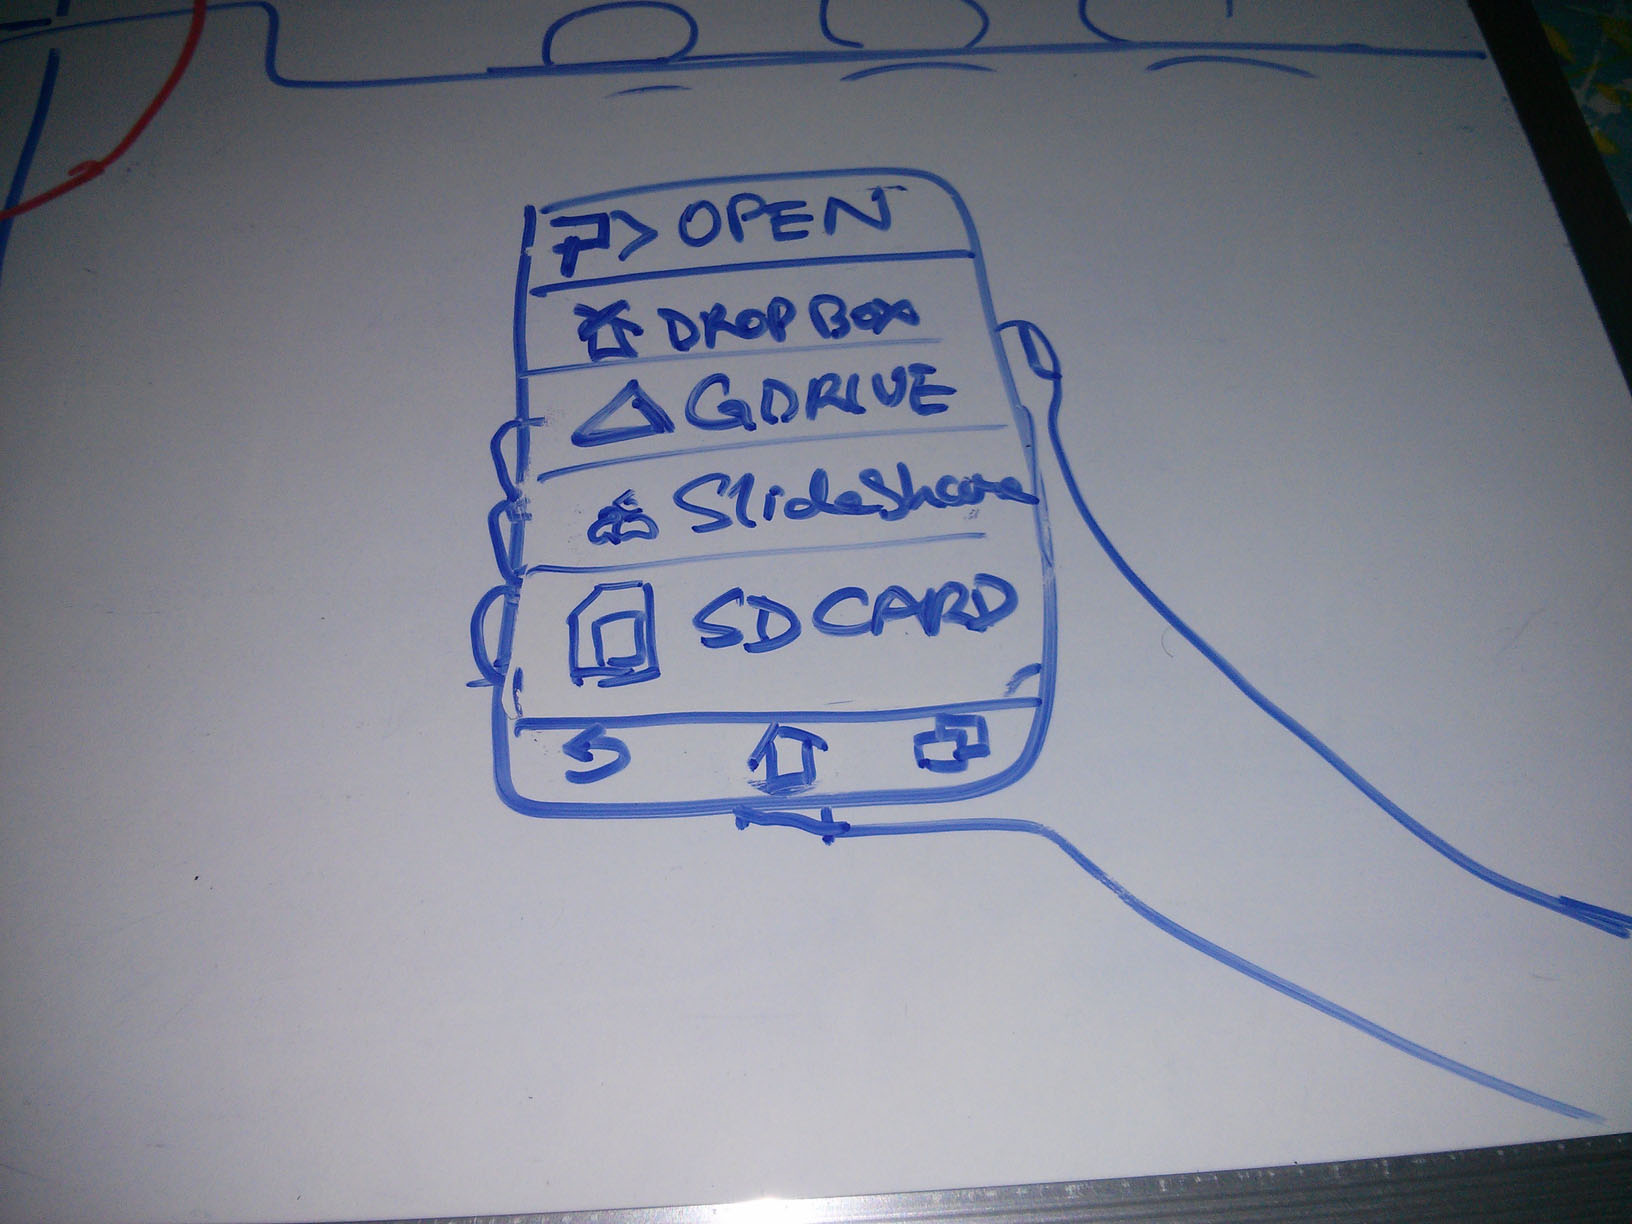 > OPEN
DROPBOX
GDRIVE
SlideShare
SD CARD